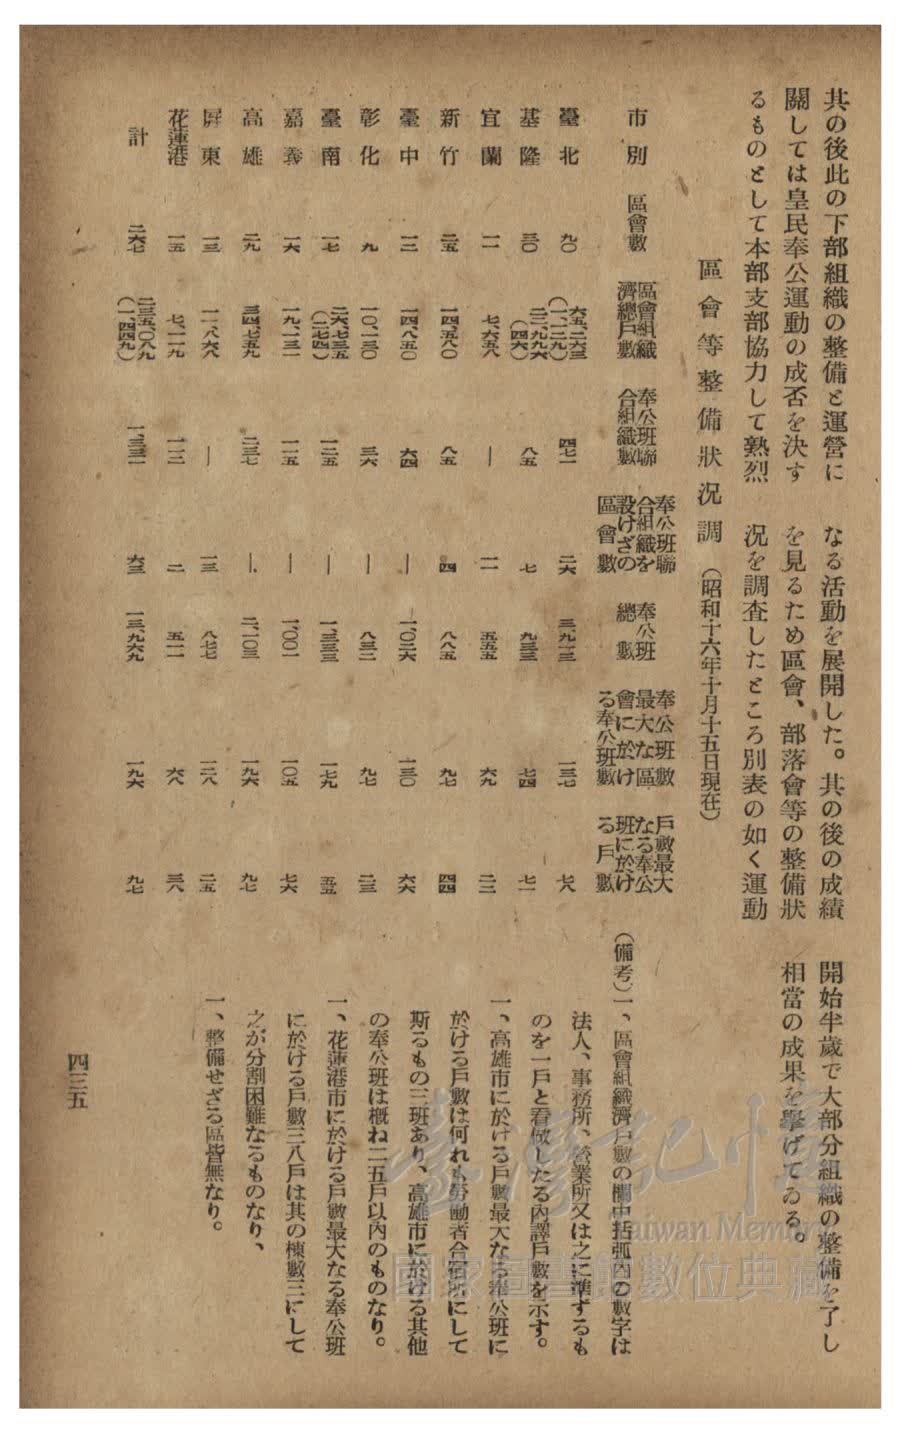 其の後此の下部組織の整備と運營に
關しては皇民奉公運動の成否を決す
るものとして本部支部協力して熱烈
なる活動を展開した。其の後の成績
を見るため區會、部落會等の整備狀
況を調査したところ別表の如く運動
開始半歲で大部分組織の整備を了し
相當の成果を擧げてゐる。
區會等整備狀況調 (昭和十六年十月十五日現在)
市別 區會數 區會組織濟總戶數 奉公班聯合組織數 奉公班聯合組織を設けざの區會數 奉公班總數 奉公班數最大な區會に於ける奉公班數 戶數最大なる奉公班に於ける戶數
臺北 九〇 六五、二六三(一、一二九) 四七一 二六 三、九一三 一三七 七八
基隆 三〇 二二、九九六(四六) 八五 七 九三三 七四 七一
宜蘭 一一 七、六五八 — 一一 五五五 六九 二二
新竹 二五 一四、五八〇 八五 四 八八五 九七 四四
臺中 一二 一四、八五〇 六四 — 一、〇二六 一三〇 六六
彰化 九 一〇、一三〇 三六 — 八三二 九七 二三
臺南 一七 二六、七三五(二七四) 一二五 — 一、三三三 一七九 五五
嘉義 一六 一九、一三一 一一五 — 一、〇〇一 一〇五 七六
高雄 二九 三四、七五九 二三七 — 二、一〇三 一九六 九七
屛東 一三 一一、八六八 — 一三 八七七 一二八 二五
花蓮港 一五 七、一一九 一一二 二 五一一 六八 三八
計 二六七 二三五、〇八九(一、四四九) 一、三三一 六三 一三、九六九 一九六 九七
(備考)一、區會組織濟戶數の欄中括弧內の數字は
法人、事務所、營業所又は之に準ずるも
のを一戶と看做したる內譯戶數を示す。
一、高雄市に於ける戶數最大なる奉公班に
於ける戶數は何れも勞働者合宿所にして
斯るもの三班あり、高雄市に於ける其他
の奉公班は槪ね二五戶以內のものなり。
一、花蓮港市に於ける戶數最大なる奉公班
に於ける戶數三八戶は其の棟數三にして
之が分割困難なるものなり、
一、整備せざる區皆無なり。
四三五
臺灣記憶
Taiwan Memory
國家圖書館數位典藏